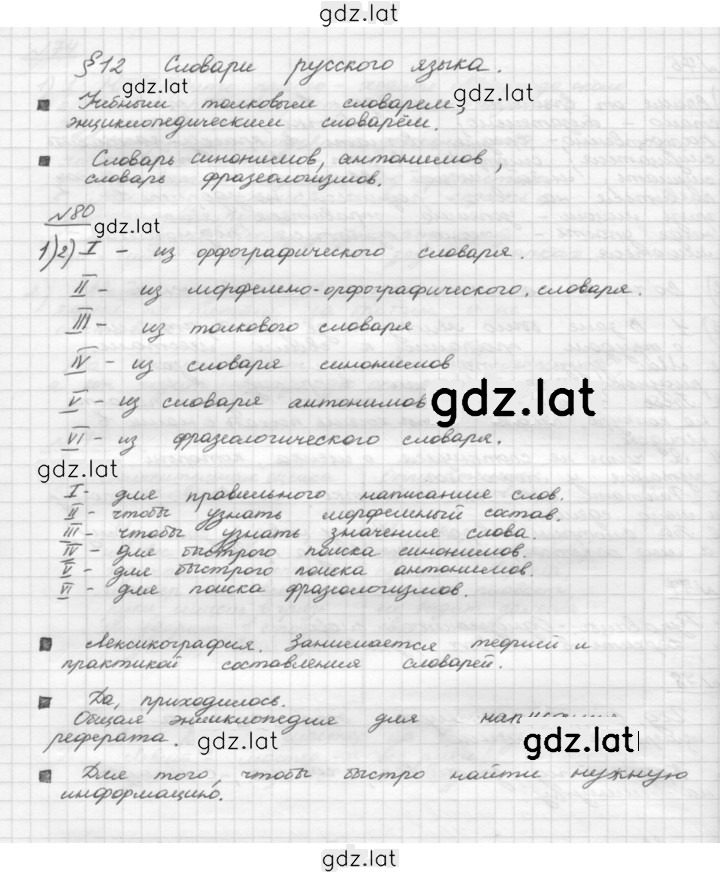 gdz.lat
§12 Словари русского языка.
gdz.lat
Учебным толковым словарем,
gdz.lat
энциклопедическим словарём.
Словарь синонимов, антонимов,
словарь фразеологизмов.
№80
gdz.lat
1)2) I – из орфографического словаря.
II – из морфемно-орфографического словаря.
III – из толкового словаря
IV – из словаря синонимов
V – из словаря антонимов
gdz.lat
VI – из фразеологического словаря.
gdz.lat
I – для правильного написание слов.
II – чтобы узнать морфемный состав.
III – чтобы узнать значение слова.
IV – для быстрого поиска синонимов.
V – для быстрого поиска антонимов.
VI – для поиска фразіологизмов.
Лексикография. Занимается теорией и
практикой составления словарей.
Да, приходилось.
Общая энциклопедия для написания
реферата.
gdz.lat
gdz.lat
Для того, чтобы быстро найти нужную
информацию.
gdz.lat